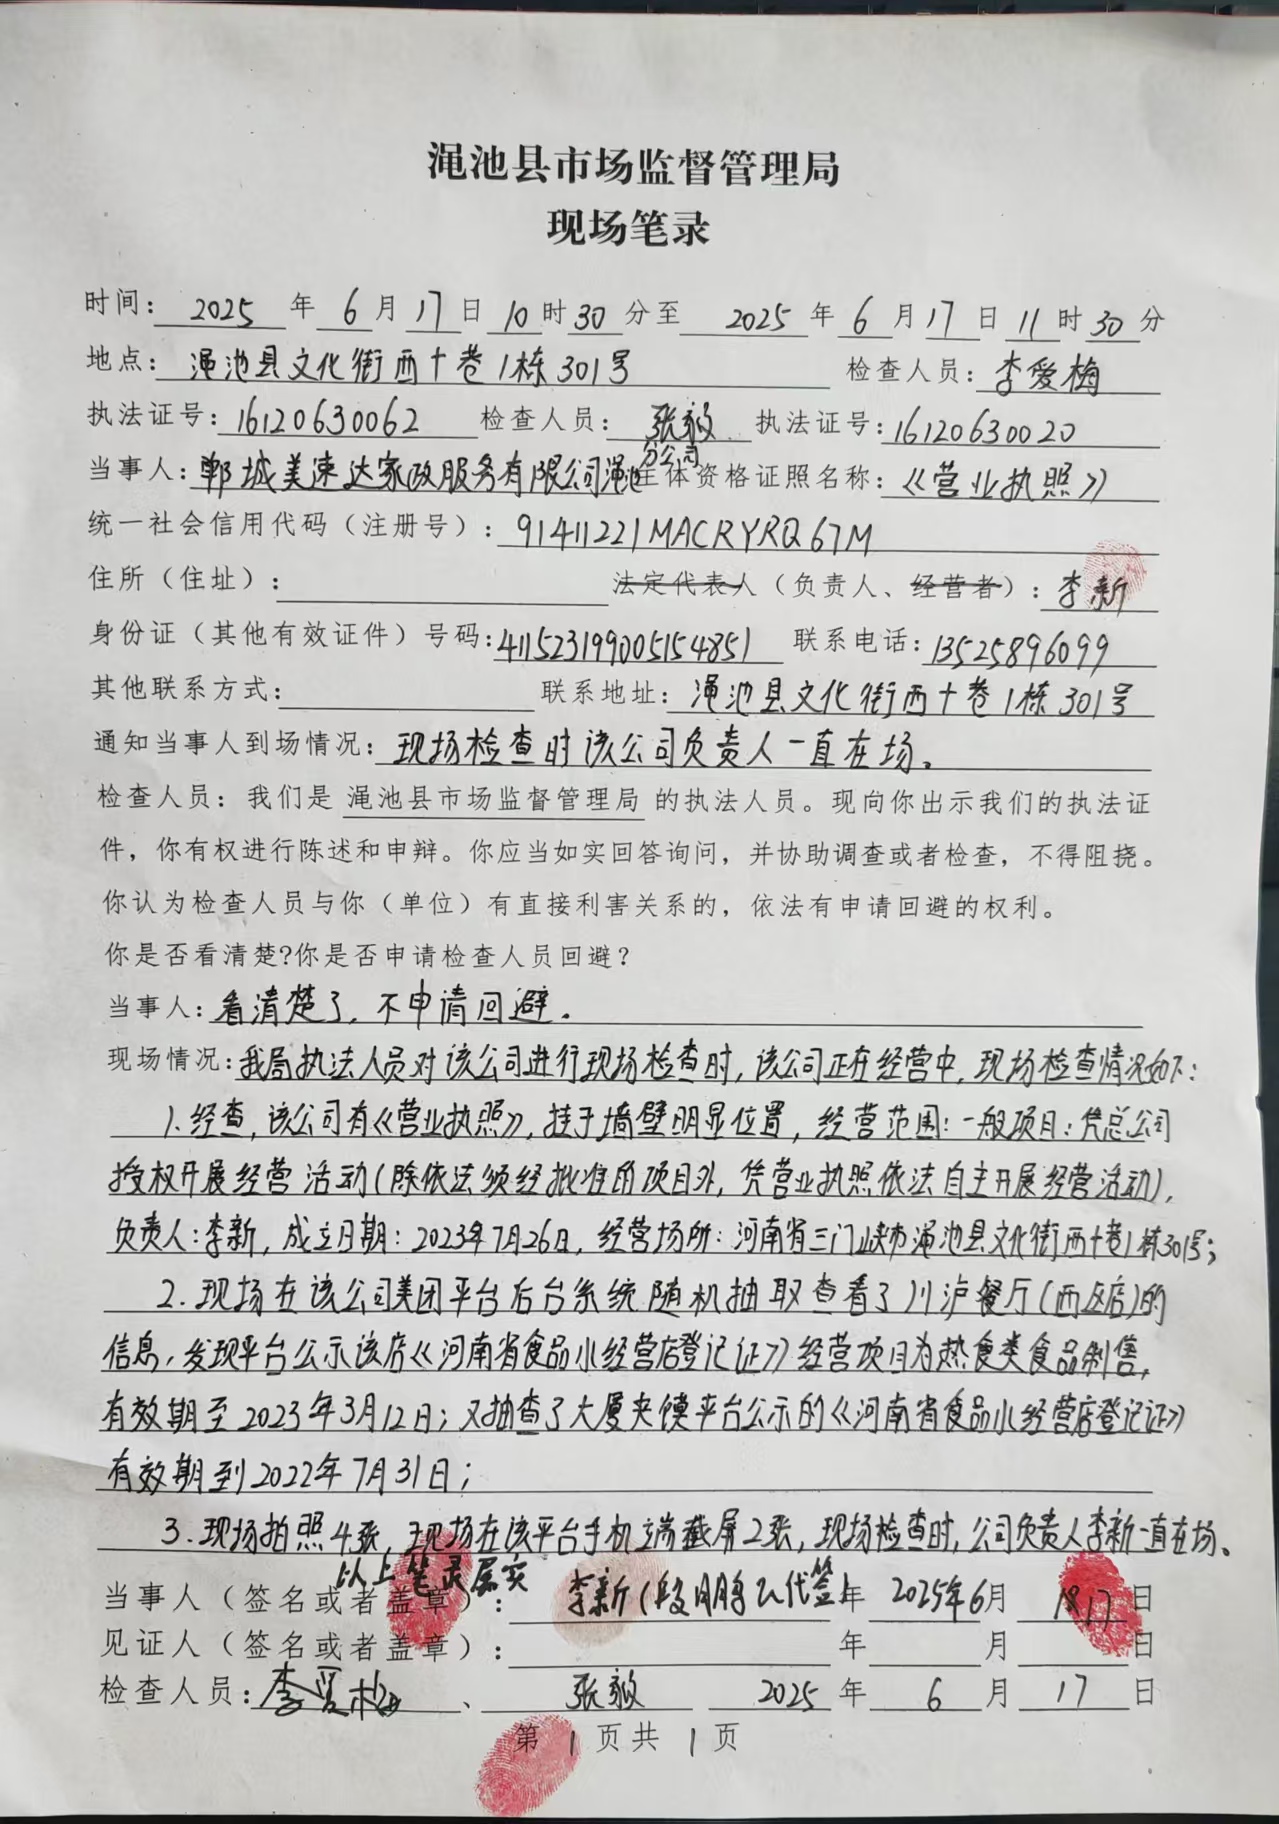 渑池县市场监督管理局
现场笔录
时间：2025年6月17日10时30分至2025年6月17日11时30分
地点：渑池县文化街西十巷1栋301号 检查人员：李爱梅
执法证号：16120630062 检查人员：张毅 执法证号：16120630020
当事人：郸城美速达家政服务有限公司渑池分公司 主体资格证照名称：《营业执照》
统一社会信用代码（注册号）：91411221MACRYRQ67M
住所（住址）： 法定代表人（负责人、经营者）：李新
身份证（其他有效证件）号码：411523199005154851 联系电话：13525896099
其他联系方式： 联系地址：渑池县文化街西十巷1栋301号
通知当事人到场情况：现场检查时该公司负责人一直在场。
检查人员：我们是 渑池县市场监督管理局 的执法人员。现向你出示我们的执法证
件，你有权进行陈述和申辩。你应当如实回答询问，并协助调查或者检查，不得阻挠。
你认为检查人员与你（单位）有直接利害关系的，依法有申请回避的权利。
你是否看清楚?你是否申请检查人员回避？
当事人：看清楚了，不申请回避。
现场情况：我局执法人员对该公司进行现场检查时，该公司正在经营中，现场检查情况如下：
1.经查，该公司有《营业执照》，挂于墙壁明显位置，经营范围：一般项目：凭总公司
授权开展经营活动（除依法须经批准的项目外，凭营业执照依法自主开展经营活动），
负责人：李新，成立日期：2023年7月26日，经营场所：河南省三门峡市渑池县文化街西十巷1栋301号；
2.现场在该公司美团平台后台系统随机抽取查看了川泸餐厅（西区店）的
信息，发现平台公示该店《河南省食品小经营店登记证》经营项目为热食类食品制售，
有效期至2023年3月12日；又抽查了大厦夹馍平台公示的《河南省食品小经营店登记证》
有效期到2022年7月31日；
3.现场拍照4张，现场在该平台手机端截屏2张，现场检查时，公司负责人李新一直在场。
以上笔录属实
当事人（签名或者盖章）：李新（段鹏飞代签 年 2025年6月 17日
见证人（签名或者盖章）： 年 月 日
检查人员：李爱梅、张毅 2025年6月17日
第1页共1页